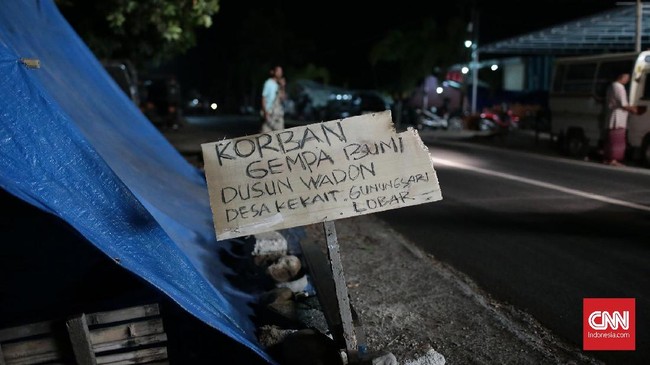 KORBAN
GEMPA BUMI
DUSUN WADON
DESA KEKAIT. GUNUNGSARI
LOBAR
CNN
Indonesia.com